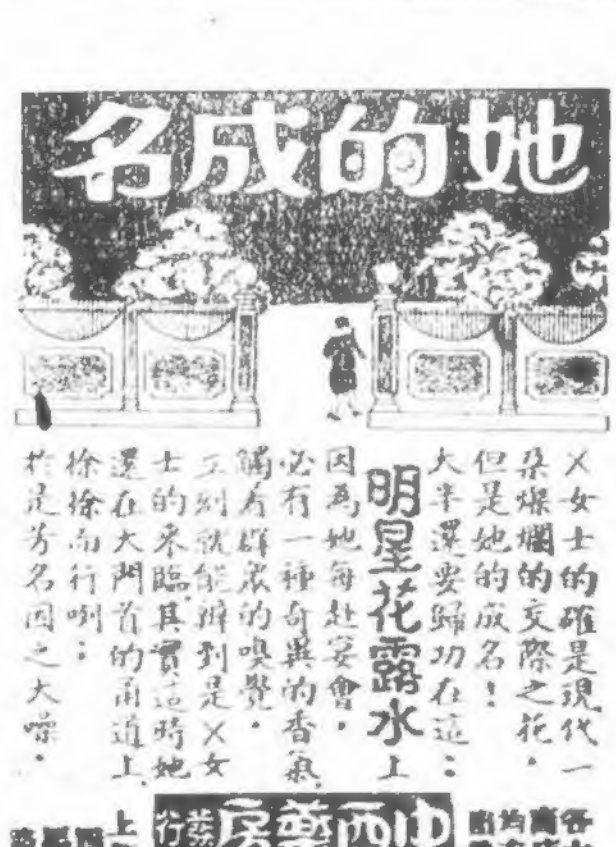 她的成名
X女士的確是現代一
朶燦爛的交際之花。
但是她的成名！
大半還要歸功在這：
明星花露水上
因爲她每赴宴會，
必有一種奇異的香氣，
觸着群衆的嗅覺。
立刻就能辨到是X女
士的來臨，其實這時她
還在大門首的甬道上，
徐徐而行咧；
於是芳名因之大噪。
中西藥房
發行
上